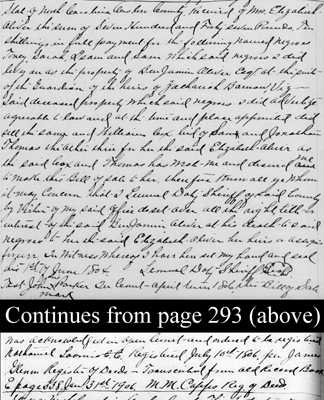 State of North Carolina Craven County Received of Mrs. Elizabeth
Oliver the sum of Seven Hundred and Forty seven Pounds, Ten
shillings in full payment for the following named negroes
Tony, Sarah, and Sam Which said negroes I did
levy on as the property of Benjamin Oliver Esqr. at the suit
of the Guardian of the heirs of Zachariah Barrow Viz
Said deceased property which said negroes I did advertize
agreeable to law and at the time and place appointed did
sell the same and William Cox bid of Sam and Jonathan
Thomas the other three for her the said Elizabeth Oliver as
the said Cox and Thomas has and desired me
to make the Bill of Sale to her therefore Know all ye Whom
it may Concern that I Lemuel Doty Sheriff of said County
by Virtue of my said office doth over all the right title
interest of the said Benjamin Oliver at his death to said
negroes to her the said Elizabeth Oliver her heirs & assigns
forever In Witness Whereof I have her set my hand and seal
this 1st of June 1804 Lemuel Doty Sheriff
Test John Parker Cr. Court April Term 1806, per Bill of Sale
Continues from page 293 (above)
was acknowledged in open Court and ordered to be registered
Nathaniel Registered July 10th 1806, per James
Register of Deeds - Transcribed from old Record Book
E page 338, Jan 31st 1906, M. M. Capps Reg of Deeds